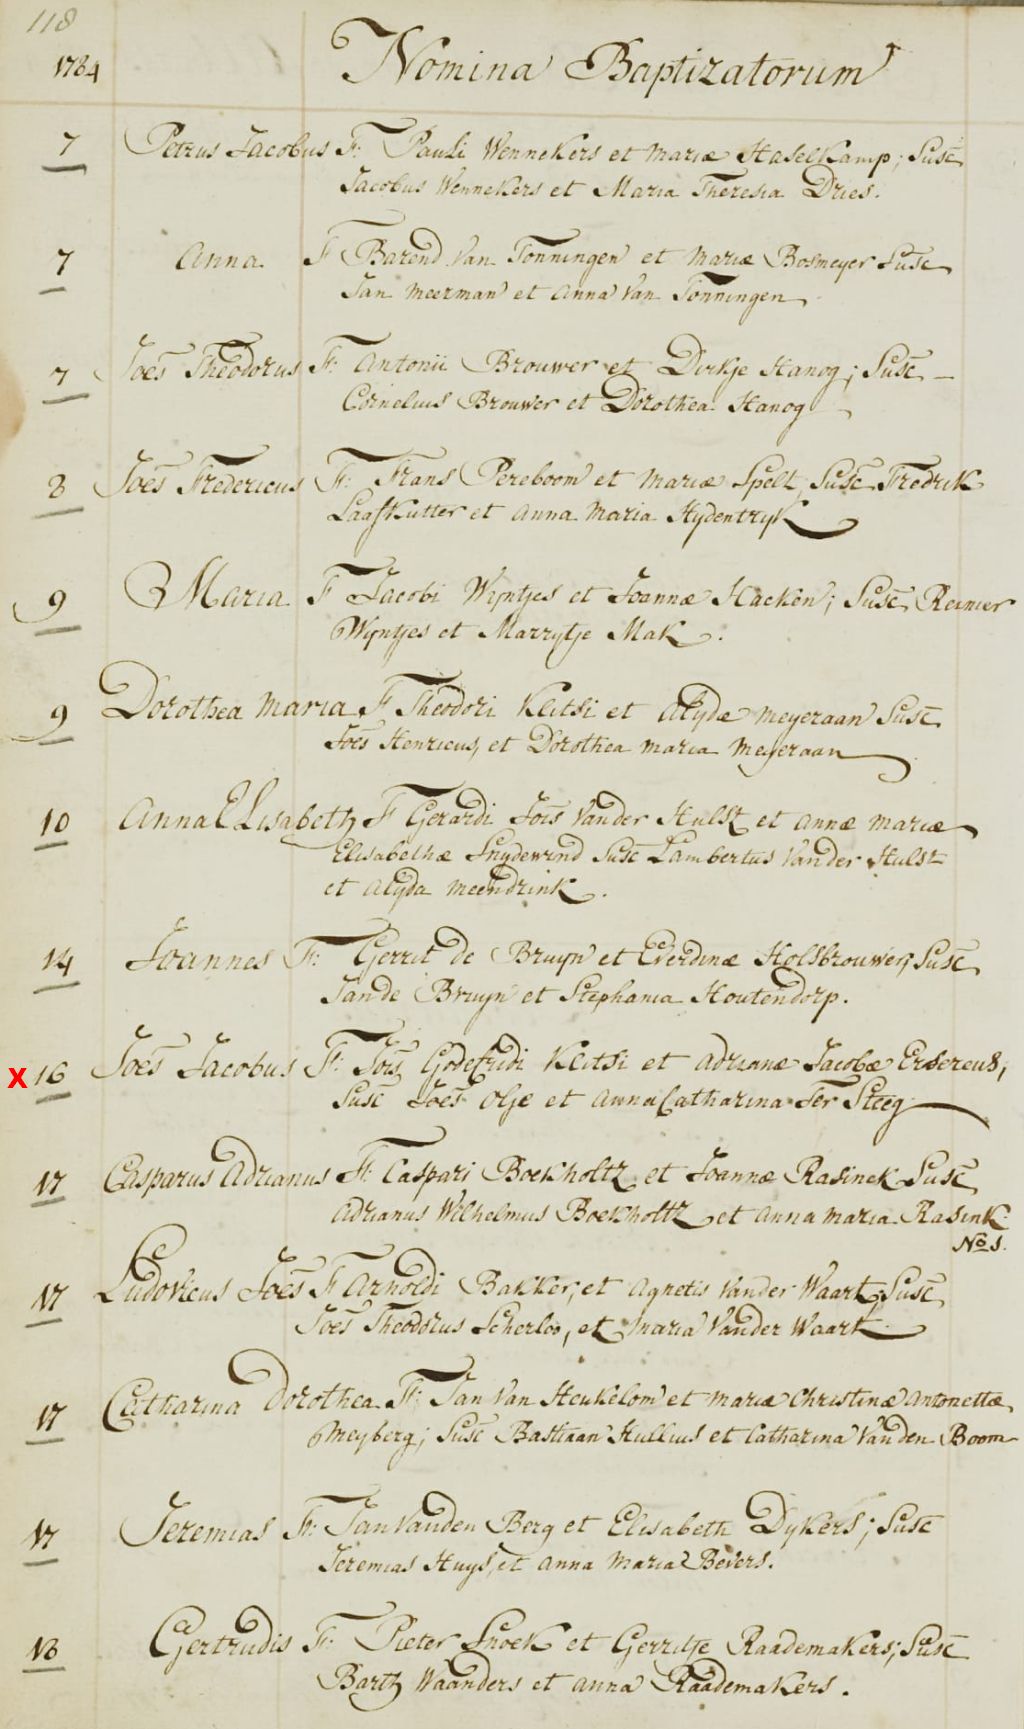 118
1784 Nomina Baptizatorum
7 Petrus Jacobus F: Pauli Wennekers et Mariæ Haselkamp; Susc
Jacobus Wennekers et Maria Theresia Dries.
7 Anna F Barend Van Tonningen et Mariæ Bosmeyer Susc
Jan Meerman et Anna Van Tonningen
7 Joēs Theodorus F: Antonii Brouwer et Dirkje Hanog; Susc —
Cornelius Brouwer et Dorothea Hanog
8 Joēs Fredericus F: Frans Pereboom et Mariæ Spelt, Susc Fredrik
Laafkutter et Anna Maria Hydentryk
9 Maria F Jacobi Wyntjes et Joannæ Hacken; Susc, Reinier
Wyntjes et Marrytje Mak.
9 Dorothea Maria F Theodori Klitsi et Alydæ Meyeraan Susc
Joēs Henricus, et Dorothea Maria Meyeraan
10 Anna Elisabeth F Gerardi Jois Vander Hulst et Annæ Mariæ
Elisabethæ Snydewind Susc Lambertus Vander Hulst
et Alyda Meendrink.
14 Joannes F: Gerrit de Bruyn et Everdinæ Holsbrouwer, Susc
Jan de Bruyn et Stephania Houtendorp.
X 16 Joēs Jacobus F: Jois Godefridi Klitsi et Adrianæ Jacobæ Ersereus,
Susc Joēs Olje et Anna Catharina Ter Steeg
17 Casparus Adrianus F: Caspari Boekholtz et Joannæ Rasinek Susc
Adrianus Wilhelmus Boekholtz et Anna Maria Rasink
No 1.
17 Ludovicus Joēs F Arnoldi Bakker, et Agnetis Vander Waart, Susc
Joēs Theodorus Scherloo, et Maria Vander Waart
17 Catharina Dorothea F: Jan Van Heukelom et Mariæ Christinæ Antonettæ
Meyberg; Susc Bastiaan Hullius et Catharina Vanden Boom
17 Jeremias F: Jan Vanden Berg et Elisabeth Dykers; Susc
Jeremias Huys, et Anna Maria Bevers.
18 Gertrudis F: Pieter Snoek et Gerritje Raademakers; Susc
Barth Waanders et Anna Raademakers.